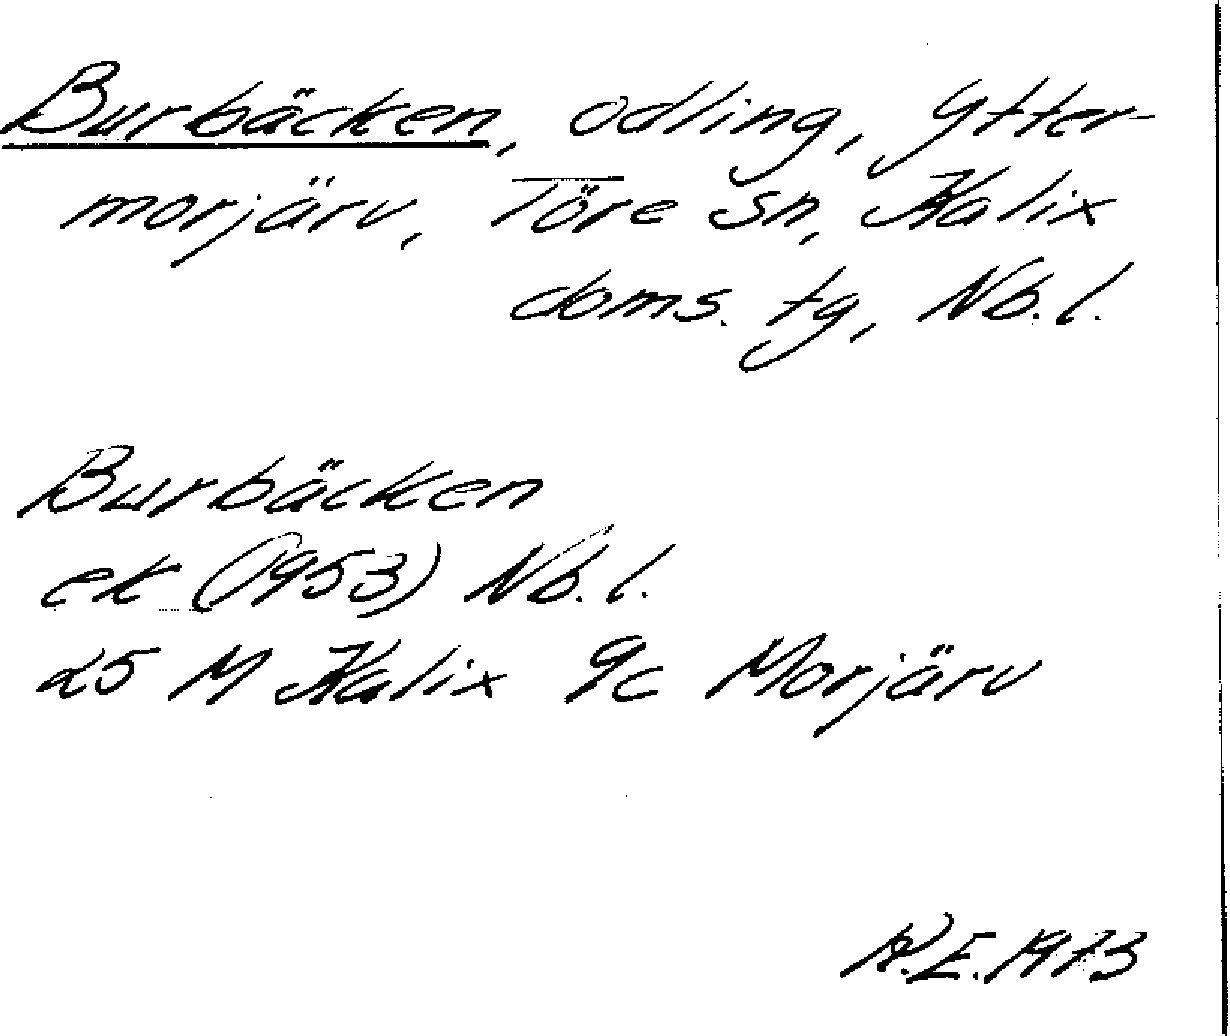 Burbäcken, odling, Ytter-
morjärv, Töre sn, Kalix
doms. tg, Nb.l.
Burbäcken
ek (1953) Nb.l.
25 M Kalix 9c Morjärv
E. 1973